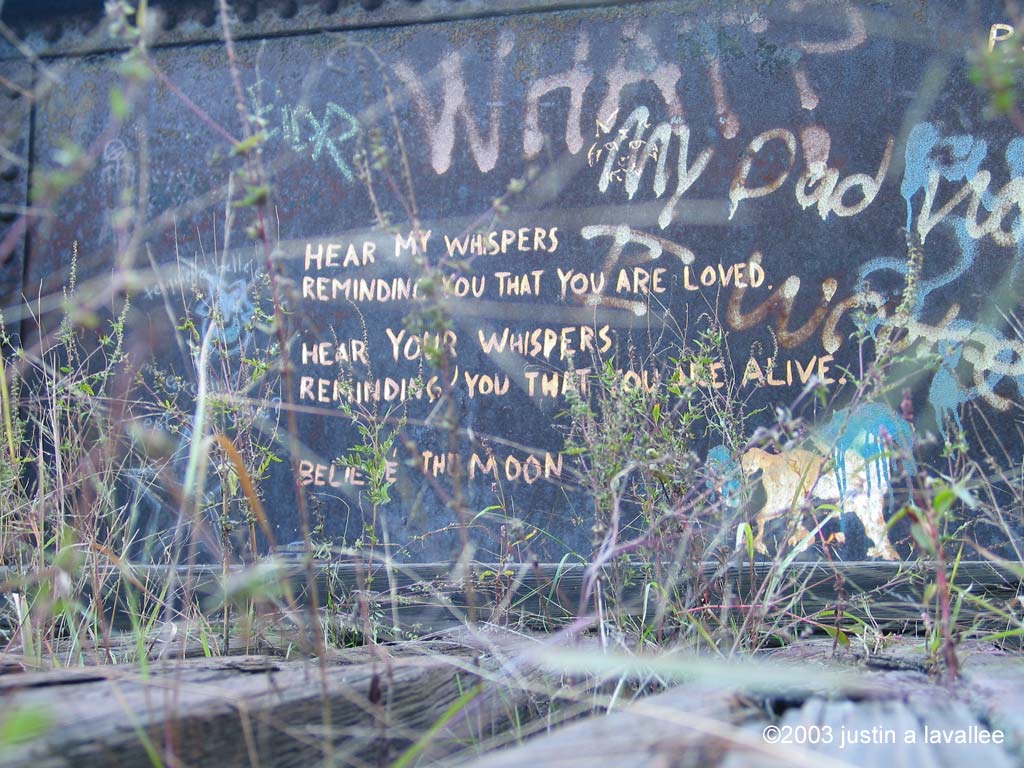 WHAT?
P
FiDR
My Dad
HEAR MY WHISPERS
REMINDING YOU THAT YOU ARE LOVED.
I
HEAR YOUR WHISPERS
REMINDING YOU THAT YOU ARE ALIVE.
BELIEVE THE MOON
©2003 justin a lavallee